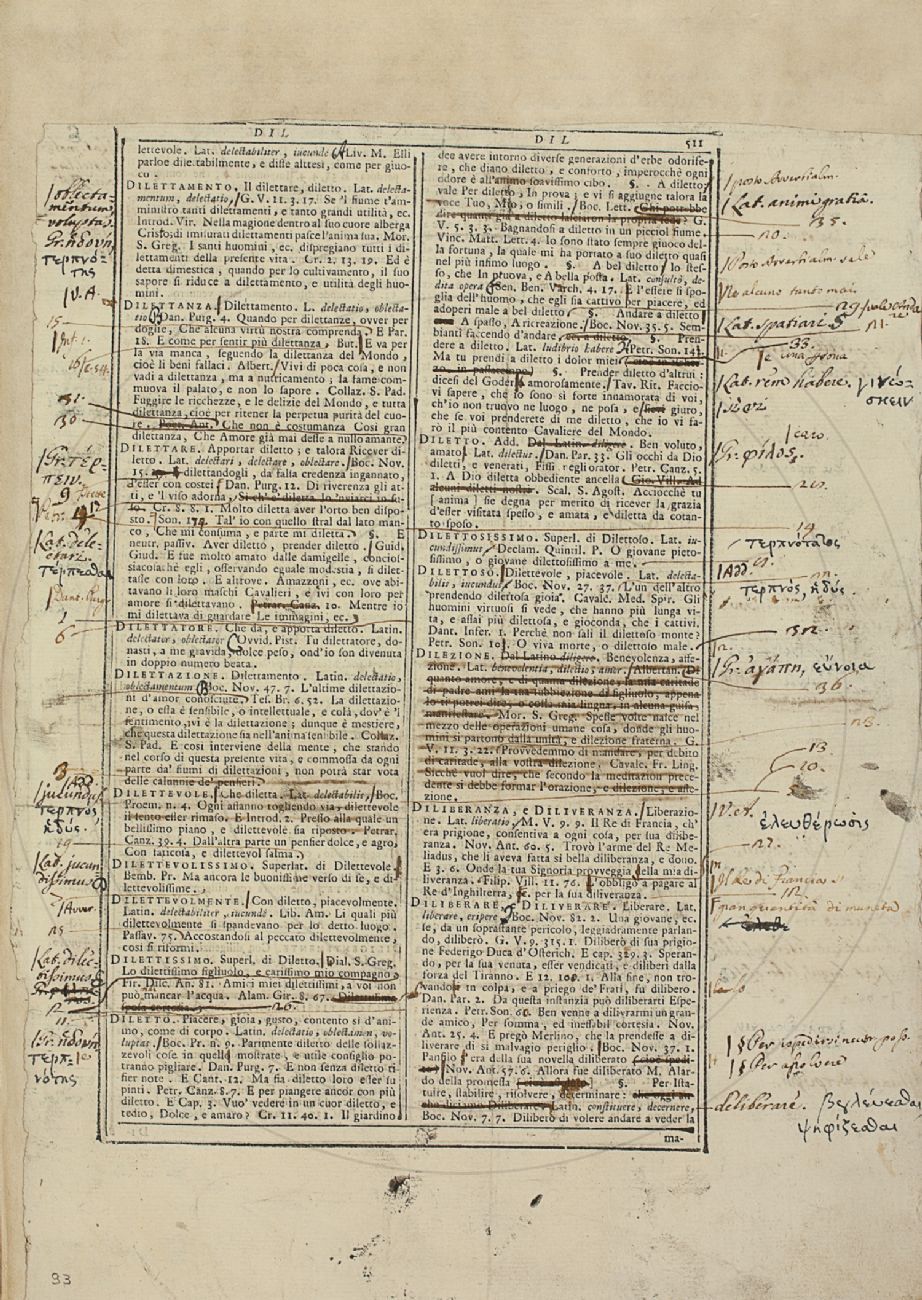 DIL
lettevole. Lat. delectabiliter, iucundè Liv. M. Elli
parloe dilettabilmente, e disse altresì, come per giuo-
co.
DILETTAMENTO, Il dilettare, diletto. Lat. delecta-
mentum, delectatio, G. V. 11. 3. 17. Se 'l fiume t'am-
ministrò tanti dilettamenti, e tanto grandi utilità, ec.
Introd. Vir. Nella magione dentro al suo cuore alberga
Cristo; di misurati dilettamenti pasce l'anima sua. Mor.
S. Greg. I santi huomini, ec. dispregiano tutti i di-
lettamenti della presente vita. Cr. 2. 13. 19. Ed è
detta dimestica, quando per lo cultivamento, il suo
sapore si riduce a dilettamento, e utilità degli huo-
mini.
DILETTANZA. Dilettamento. L. delectatio, oblecta-
tio Dan. Purg. 4. Quando per dilettanze, ovver per
doglie, Che alcuna virtù nostra comprenda. E Par.
18. E come per sentir più dilettanza, But. E va per
la via manca, seguendo la dilettanza del Mondo,
cioè li beni fallaci. Albert. Vivi di poca cosa, e non
vadi a dilettanza, ma a nutricamento; la fame com-
muova il palato, e non lo sapore. Collaz. S. Pad.
Fuggire le ricchezze, e le delizie del Mondo, e tutta
dilettanza, cioè per ritener la perpetua purità del cuo-
re. Poet. Ant. Che non è costumanza Così gran
dilettanza, Che Amore già mai desse a nullo amante.
DILETTARE. Apportar diletto; e talora Ricever di-
letto. Lat. delectari, delectare, oblectare. Boc. Nov.
15. dilettandogli, da falsa credenza ingannato,
d'esser con costei Dan. Purg. 12. Di riverenza gli at-
ti, e 'l viso adorna, Sì ch' e' diletta lo 'nviarci in su-
so. Cr. 8. 8. 1. Molto diletta aver l'orto ben dispo-
sto. Son. 174. Tal' io con quello stral dal lato man-
co, Che mi consuma, e parte mi diletta. §. E
neutr. passiv. Aver diletto, prender diletto. Guid.
Giud. E fue molto amato dalle damigelle, concios-
siacosachè egli, osservando eguale modestia, si dilet-
tasse con loro. E altrove. Amazzoni, ec. ove abi-
tavano li loro maschi Cavalieri, e ivi con loro per
amore si dilettavano. Petrar. Canz. 10. Mentre io
mi dilettava di guardare Le immagini, ec.
DILETTATORE. Che dà, e apporta diletto. Latin.
delectator, oblectator Ovvid. Pist. Tu dilettatore, do-
nasti, a me gravida, dolce peso, ond'io son divenuta
in doppio numero beata.
DILETTAZIONE. Dilettamento. Latin. delectatio,
oblectamentum Boc. Nov. 47. 7. L'ultime dilettazio-
ni d'amor conosciute. Tes. Br. 6. 52. La dilettazio-
ne, o essa è sensibile, o intellettuale, e colà, dov'è 'l
sentimento, ivi è la dilettazione; dunque è mestiere,
che questa dilettazione sia nell'anima sensibile. Collaz.
S. Pad. E così interviene della mente, che stando
nel corso di questa presente vita, e commossa da ogni
parte da' fiumi di dilettazioni, non potrà star vota
delle calunnie de' pensieri.
DILETTEVOLE. Che diletta. Lat. delectabilis, Boc.
Proem. n. 4. Ogni affanno togliendo via, dilettevole
il sento esser rimaso. E Introd. 2. Presso alla quale un
bellissimo piano, e dilettevole sia riposto. Petrar.
Canz. 39. 4. Dall'altra parte un pensier dolce, e agro,
Con faticosa, e dilettevol salma.
DILETTEVOLISSIMO. Superlat. di Dilettevole.
Bemb. Pr. Ma ancora le buonissime verso di se, e di-
lettevolissime.
DILETTEVOLMENTE. Con diletto, piacevolmente.
Latin. delectabiliter, iucundè. Lib. Am. Li quali più
dilettevolmente si spandevano per lo detto luogo.
Passav. 75. Accostandosi al peccato dilettevolmente,
così si risformi.
DILETTISSIMO. Superl. di Diletto. Dial. S. Greg.
Lo dilettissimo figliuolo, e carissimo mio compagno.
Fir. Disc. An. 81. Amici miei dilettissimi, a voi non
può mancar l'acqua. Alam. Gir. 8. 67. Dilettissima
DILETTO. Piacere, gioia, gusto, contento sì d'ani-
mo, come di corpo. Latin. delectatio, oblectamen, vo-
luptas Boc. Pr. n. 9. Parimente diletto delle sollaz-
zevoli cose in quelle mostrate, e utile consiglio po-
tranno pigliare. Dan. Purg. 7. E non senza diletto ti
fier note. E Cant. 12. Ma sia diletto loro esser su
pinti. Petr. Canz. 8. 7. E per piangere ancor con più
diletto. E Cap. 3. Vuo' vedere in un cuor diletto, e
tedio, Dolce, e amaro? Cr. 11. 40. 1. Il giardino
DIL 511
dee avere intorno diverse generazioni d'erbe odorife-
re, che diano diletto, e conforto, imperocchè ogni
odore è all'animo soavissimo cibo. §. A diletto
vale Per diletto, In prova; e vi si aggiugne talora la
voce Tuo, Mio, o simili. Boc. Lett. Chi potrebbe
dire quanti già a diletto lasciaron la propria sede? G.
V. 5. 3. 3. Bagnandosi a diletto in un picciol fiume.
Vinc. Matt. Lett. 4. Io sono stato sempre giuoco del-
la fortuna, la quale mi ha portato a suo diletto quasi
nel più infimo luogo. §. A bel diletto lo stes-
so, che In pruova, e A bella posta. Lat. consultò, de-
dita opera Sen. Ben. Varch. 4. 17. E l'essere si spo-
glia dell'huomo, che egli sia cattivo per piacere, ed
adoperi male a bel diletto. §. Andare a diletto
A spasso, A ricreazione. Boc. Nov. 35. 5. Sem-
bianti facendo d'andare a diletto. §. Pren-
dere a diletto, Lat. ludibrio habere Petr. Son. 141.
Ma tu prendi a diletto i dolor miei
§. Prender diletto d'altri:
dicesi del Godere amorosamente. Tav. Rit. Faccio-
vi sapere, che io sono sì forte innamorata di voi,
ch'io non truovo ne luogo, ne posa, e giuro,
che se voi prenderete di me diletto, che io vi fa-
rò il più contento Cavaliere del Mondo.
DILETTO. Add. Dal Latin. diligere. Ben voluto,
amato Lat. dilectus. Dan. Par. 33. Gli occhi da Dio
diletti, e venerati, Fissi negli orator. Petr. Canz. 5.
1. A Dio diletta obbediente ancella Gio. Vill. Ad
alcuni diletti nostri. Scal. S. Agost. Acciocchè tu
[anima] sie degna per merito di ricever la grazia
d'esser visitata spesso, e amata, e diletta da cotan-
to sposo.
DILETTOSISSIMO. Superl. di Dilettoso. Lat. iu-
cundissimus Declam. Quintil. P. O giovane pieto-
sissimo, o giovane dilettosissimo a me.
DILETTOSO. Dilettevole, piacevole. Lat. delecta-
bilis, iucundus Boc. Nov. 27. 37. L'un dell'altro
prendendo dilettosa gioia. Cavalc. Med. Spir. Gli
huomini virtuosi si vede, che hanno più lunga vi-
ta, e assai più dilettosa, e gioconda, che i cattivi.
Dant. Infer. 1. Perchè non sali il dilettoso monte?
Petr. Son. 101. O viva morte, o dilettoso male.
DILEZIONE. Dal Latino diligere. Benevolenza, affe-
zione. Lat. benevolentia, dilectio, amor. Albertan.
quanto amore, e di quanta dilezione, la mia caritade
di padre ami la tua subbiezione di figliuolo, appena
io ti potrei dire, o colla mia lingua, in alcuna guisa,
manifestare. Mor. S. Greg. Spesse volte nasce nel
mezzo delle operazioni umane cosa, donde gli huo-
mini si partono dalla unità, e dilezione fraterna. G.
V. 11. 3. 22. Provvedemmo di mandare, per debito
di caritade, alla vostra dilezione. Cavalc. Fr. Ling.
Sicchè vuol dire, che secondo la meditazion prece-
dente si debbe formar l'orazione, e dilezione, e affe-
zione.
DILIBERANZA, e DILIVERANZA. Liberazio-
ne. Lat. liberatio M. V. 9. 9. Il Re di Francia, ch'
era prigione, consentiva a ogni cosa, per sua dilibe-
ranza. Nov. Ant. 60. 5. Trovò l'arme del Re Me-
liadus, che li aveva fatta sì bella diliberanza, e dono.
E 3. 6. Onde la tua Signoria provveggia della mia di-
liveranza. Filip. Vill. 11. 76. S'obbligò a pagare al
Re d'Inghilterra, ec. per la sua diliveranza.
DILIBERARE, e DILIVERARE. Liberare. Lat.
liberare, eripere Boc. Nov. 82. 2. Una giovane, ec.
se, da un soprastante pericolo, leggiadramente parlan-
do, diliberò. G. V. 9. 315. 1. Diliberò di sua prigio-
ne Federigo Duca d'Osterich. E cap. 329. 3. Speran-
do, per la sua venuta, esser vendicati, e diliberi dalla
forza del Tiranno. E 12. 108. 1. Alla fine, non tro-
vandosi in colpa, e a priego de' Frati, fu dilibero.
Dan. Par. 2. Da questa instanzia può diliberarti Espe-
rienza. Petr. Son. 60. Ben venne a dilivrarmi un gran-
de amico, Per somma, ed ineffabil cortesia. Nov.
Ant. 25. 4. E pregò Merlino, che la prendesse a di-
liverare di sì malvagio periglio. Boc. Nov. 37. 1.
Panfilo s'era della sua novella diliberato
Nov. Ant. 57. 6. Allora fue diliberato M. Alar-
do della promessa §. Per Ista-
tuire, stabilire, risolvere, determinare:
Latin. constituere, decernere,
Boc. Nov. 7. 7. Diliberò di volere andare a veder la
ma-
oblecta-
mentum
voluptas
Gr. ἡδονή,
τερπνό-
της
V. A.
15
31
30
Gr. τέρ-
πειν.
9
Lat. dele-
ctari.
τέρπεσθαι
1
6
3
jucundus
τερπνός
ἡδύς.
19
Lat. jucun
dissimus
Avver.
Lat. dilec-
tissimus
12
11
Gr. ἡδονή
τερπ-
νότης
posto avverbialm.
Lat. animi gratia.
35.
20.
Posto avverbialm. vale
Lat. spatiari
33.
Lat. rem habere. γινώσ-
κειν
caro
Gr. φίλος.
20.
14
τερπνότατος
Add.
τερπνός, ἡδύς.
302.
Gr. ἀγάπη, εὔνοια
36.
13
10.
V. et.
ἐλευθέρωσις
27.
Il Re di Francia
112
per quantità di moneta
§ Per
§ Per assolvere
deliberare. βουλεύεσθαι
ψηφίζεσθαι
33